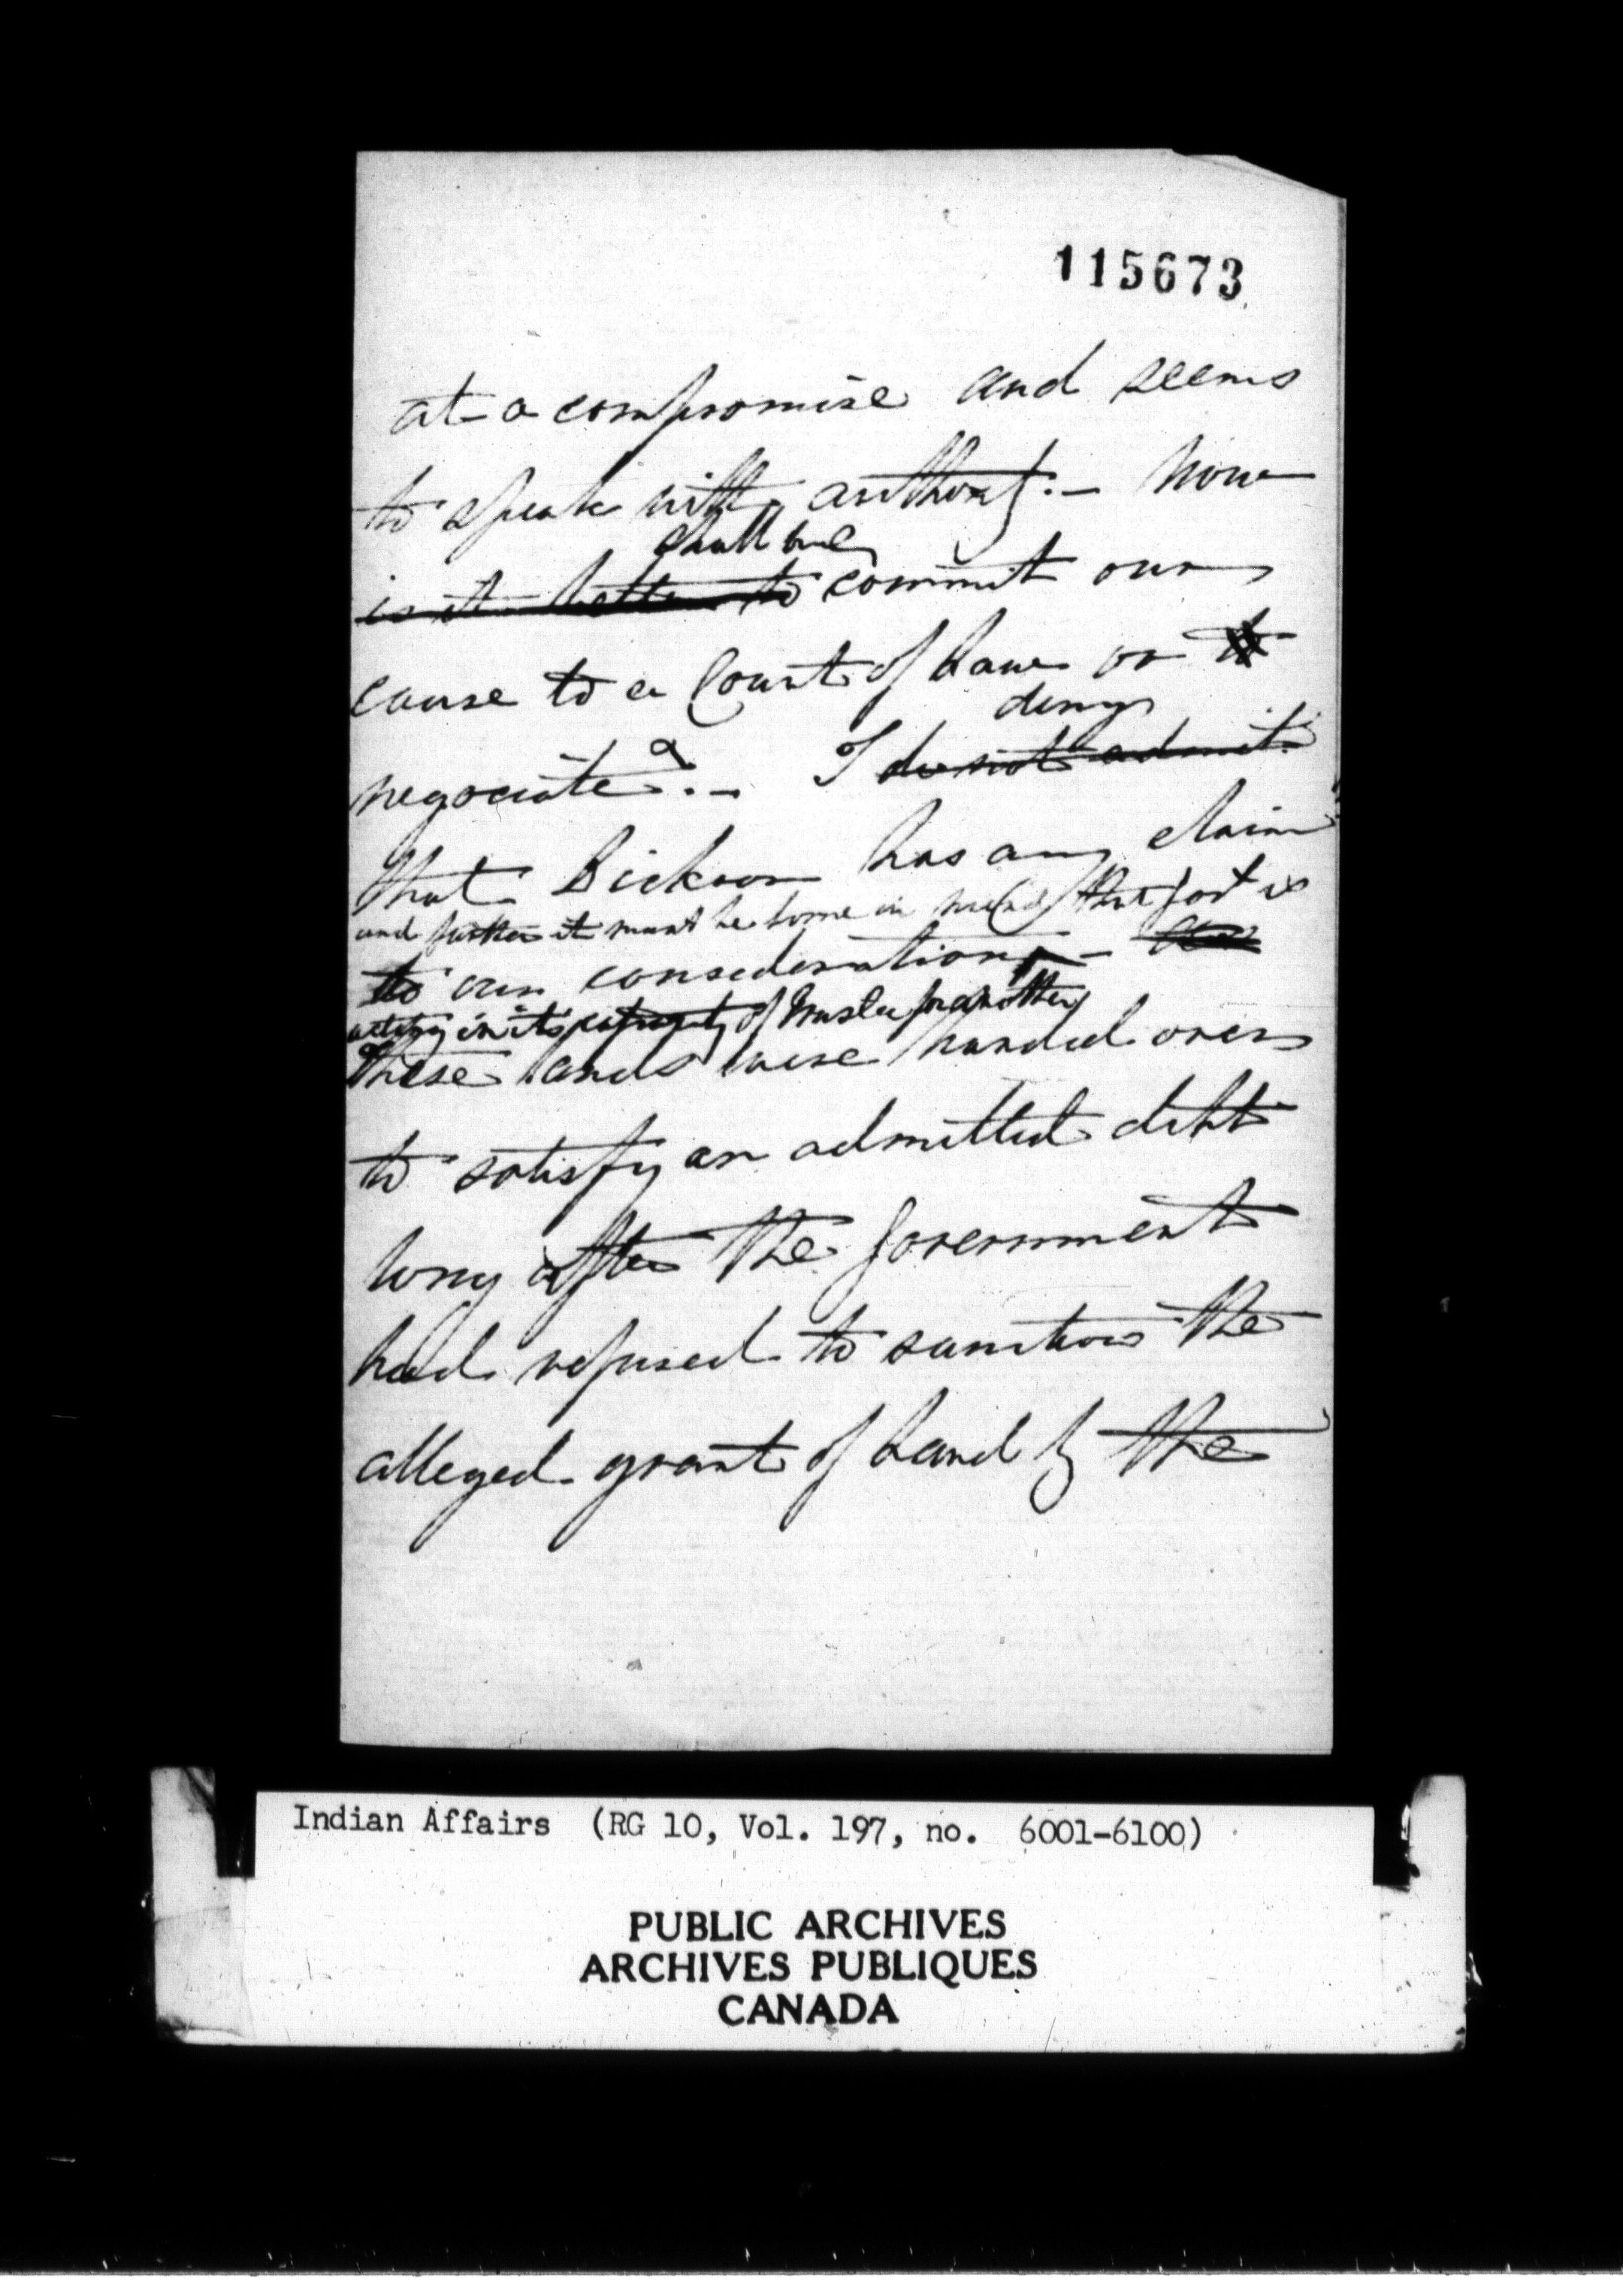 115673
at a compromise and seems
to speak with authority. – Now
shall we
is it better to commit our
cause to a Court of Law or to
negociate? – I do not admit
deny
that Dickson has any claim
and further it must be borne in mind that Govt is
to our consideration –
acting in its capacity of Trustee for another
These lands were handed over
to satisfy an admitted debt
long after the Government
had refused to sanction the
alleged grant of Land by the
Indian Affairs (RG 10, Vol. 197, no. 6001-6100)
PUBLIC ARCHIVES
ARCHIVES PUBLIQUES
CANADA